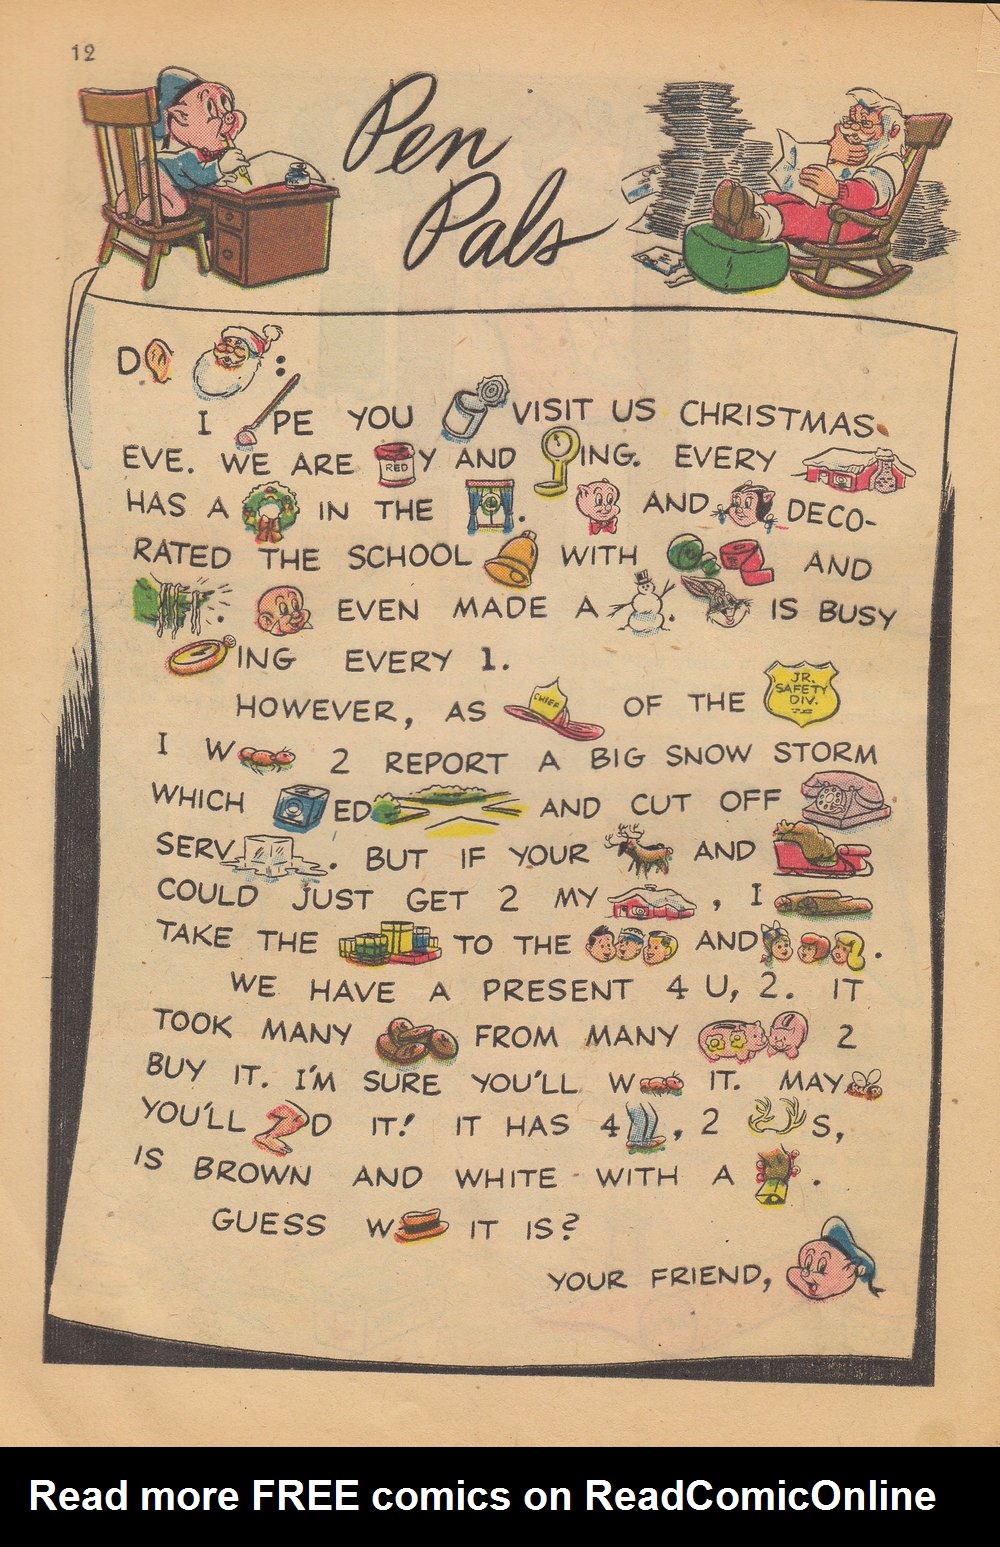 12
Pen
Pals
D :
I PE YOU VISIT US CHRISTMAS
EVE. WE ARE RED Y AND ING. EVERY
HAS A IN THE . AND DECO-
RATED THE SCHOOL WITH AND
. EVEN MADE A . IS BUSY
ING EVERY 1.
HOWEVER, AS CHIEF OF THE JR. SAFETY DIV.
I W 2 REPORT A BIG SNOW STORM
WHICH ED AND CUT OFF
SERV . BUT IF YOUR AND
COULD JUST GET 2 MY , I
TAKE THE TO THE AND .
WE HAVE A PRESENT 4 U, 2. IT
TOOK MANY FROM MANY 2
BUY IT. I'M SURE YOU'LL W IT. MAY
YOU'LL D IT! IT HAS 4 , 2 S,
IS BROWN AND WHITE WITH A .
GUESS W IT IS?
YOUR FRIEND,
Read more FREE comics on ReadComicOnline